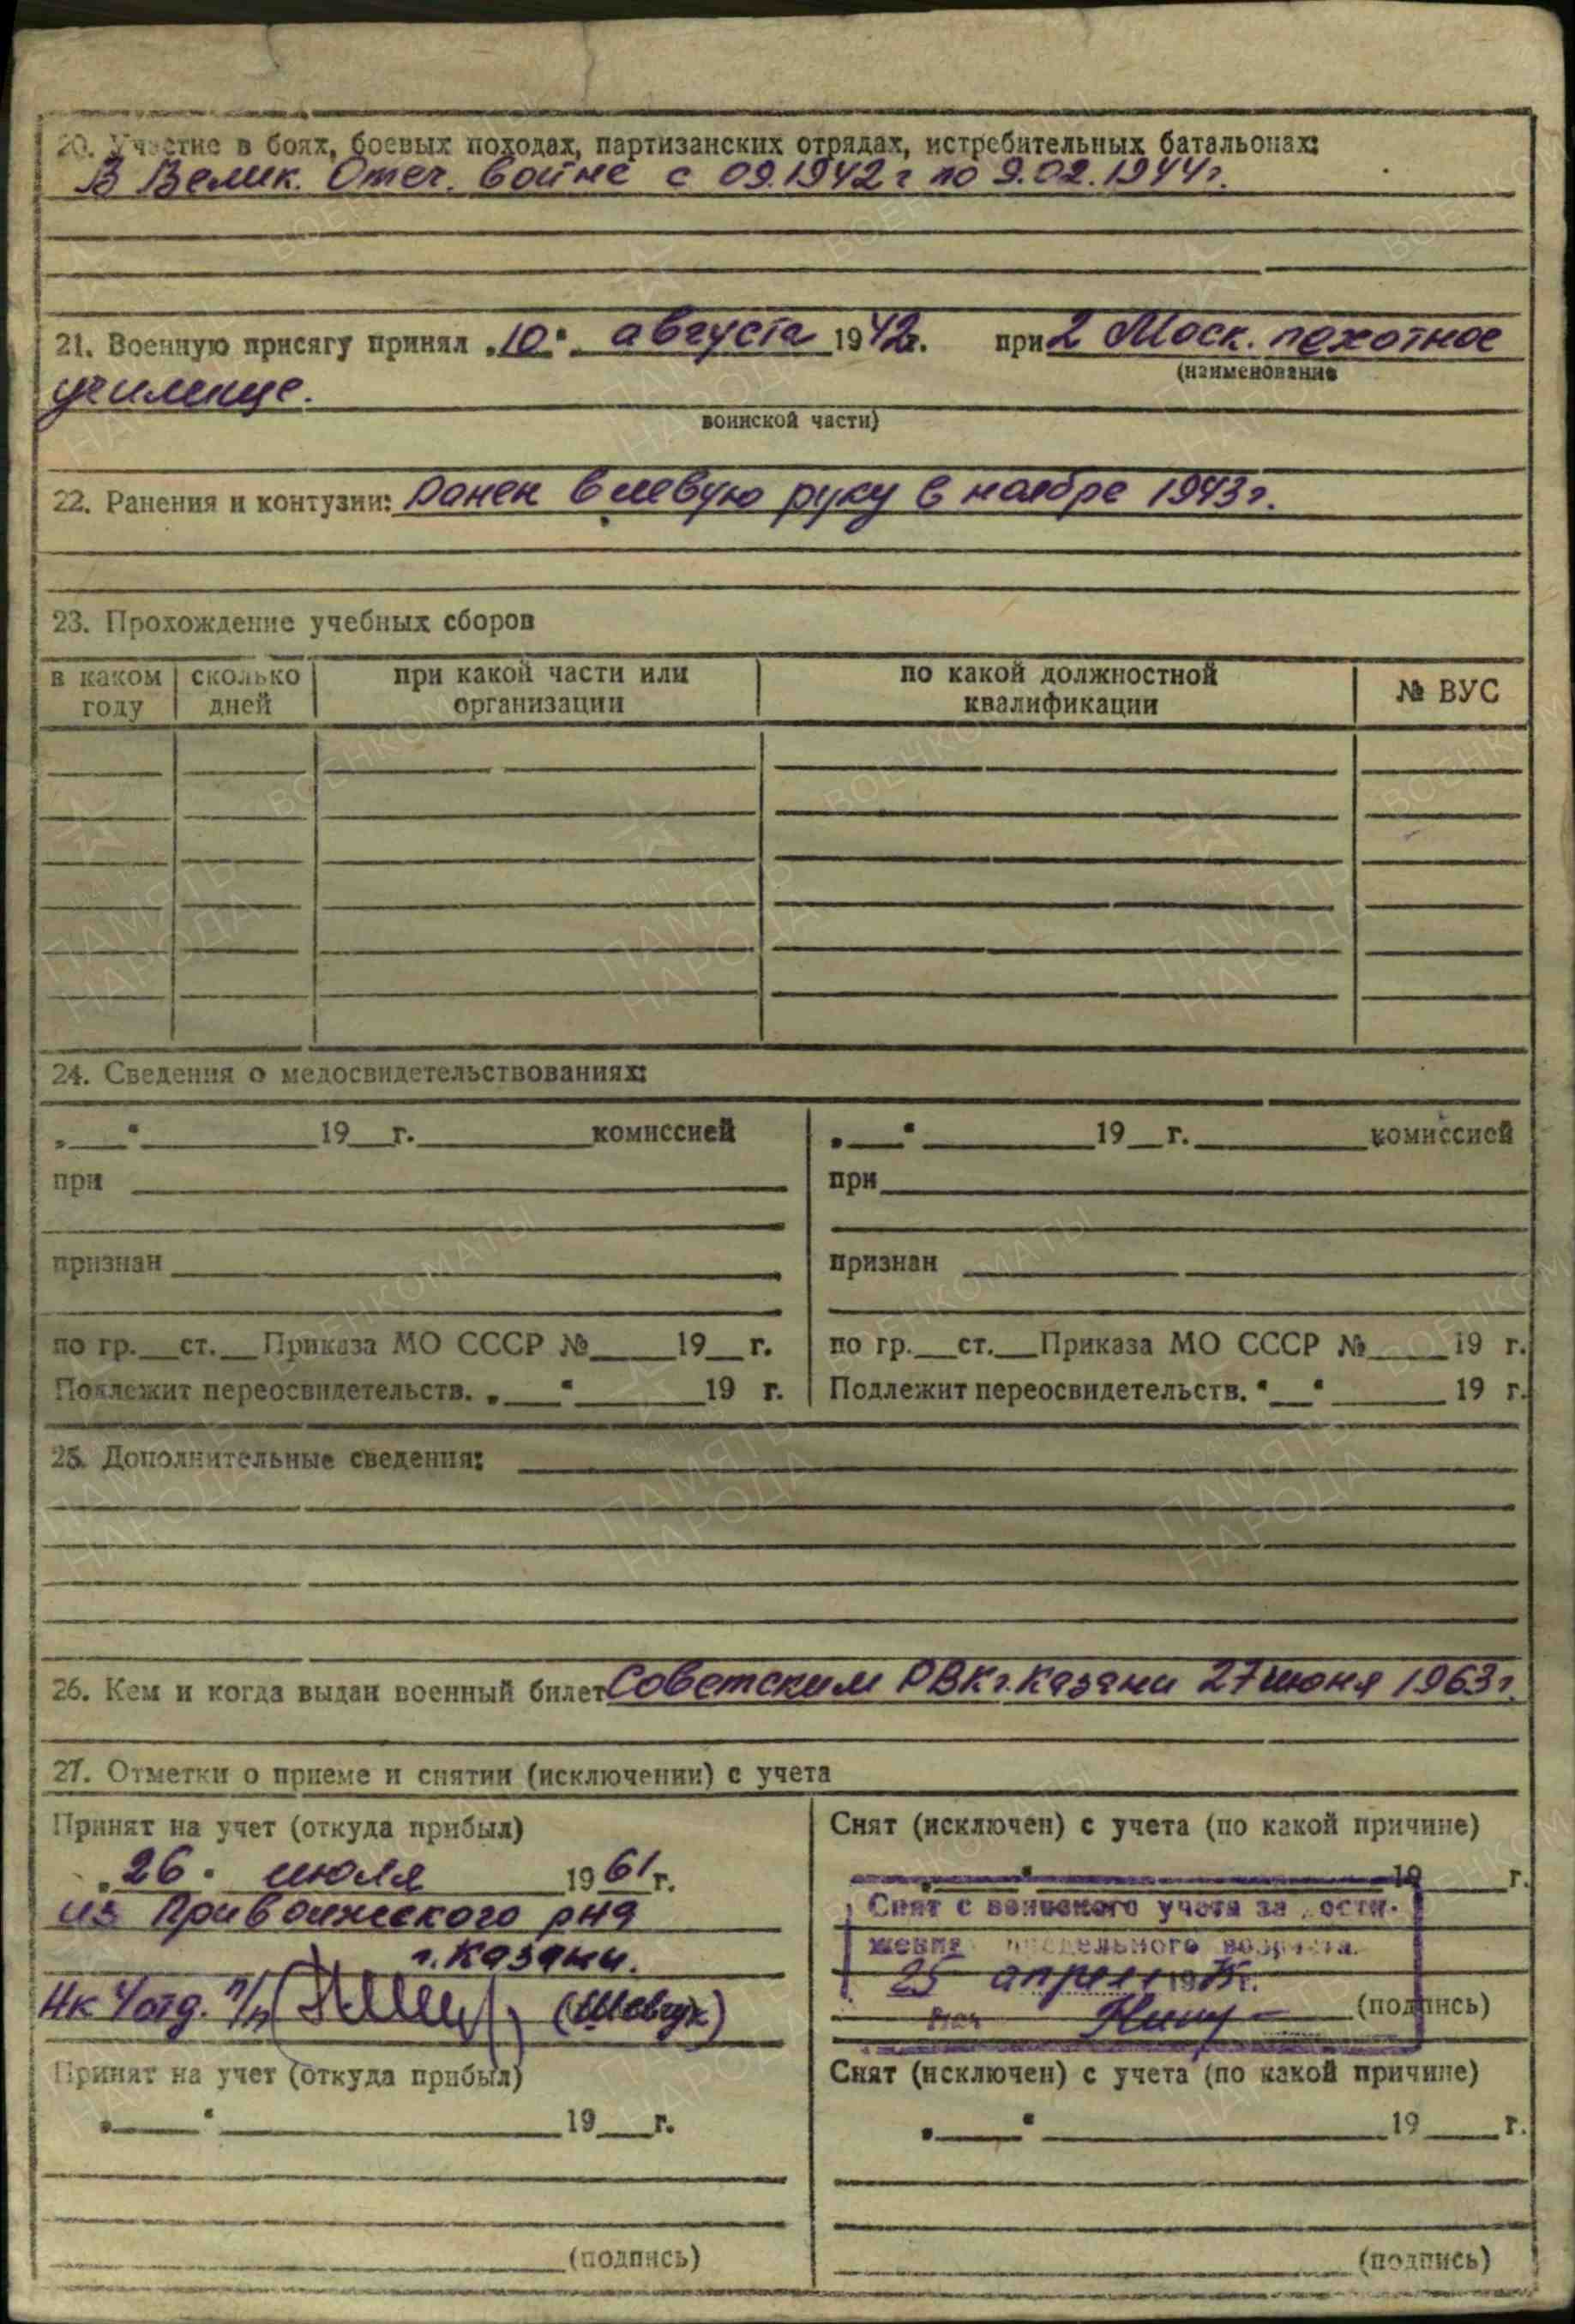 20. Участие в боях, боевых походах, партизанских отрядах, истребительных батальонах:
В Велик. Отеч. войне с 09.1942 г по 9.02.1944 г.
21. Военную присягу принял „10“ августа 1942 г. при 2 Моск. пехотное
(наименование
училище.
воинской части)
22. Ранения и контузии: Ранен в левую руку в ноябре 1943 г.
23. Прохождение учебных сборов
в каком году | сколько дней | при какой части или организации | по какой должностной квалификации | № ВУС
24. Сведения о медосвидетельствованиях:
„__“ ______ 19__г. ______ комиссией
при
признан
по гр.__ст.__Приказа МО СССР №____19__г.
Подлежит переосвидетельств. „__“ ____19 г.
„__“ ______ 19__г. ______ комиссией
при
признан
по гр.__ст.__Приказа МО СССР №____19 г.
Подлежит переосвидетельств. “__“ ____19 г.
25. Дополнительные сведения:
26. Кем и когда выдан военный билет Советским РВК г. Казани 27 июня 1963 г.
27. Отметки о приеме и снятии (исключении) с учета
Принят на учет (откуда прибыл)
„26“ июля 1961 г.
из Приволжского р-на
г. Казани.
Нк 4 отд. п/п (Шевчук)
Снят (исключен) с учета (по какой причине)
19 г.
Снят с воинского учета за дости-
жения предельного возраста
25 апреля 1975 г.
(подпись)
Принят на учет (откуда прибыл)
„__“ ______ 19__г.
(подпись)
Снят (исключен) с учета (по какой причине)
„__“ ______ 19__г.
(подпись)
ВОЕНКОМАТЫ
ПАМЯТЬ
НАРОДА